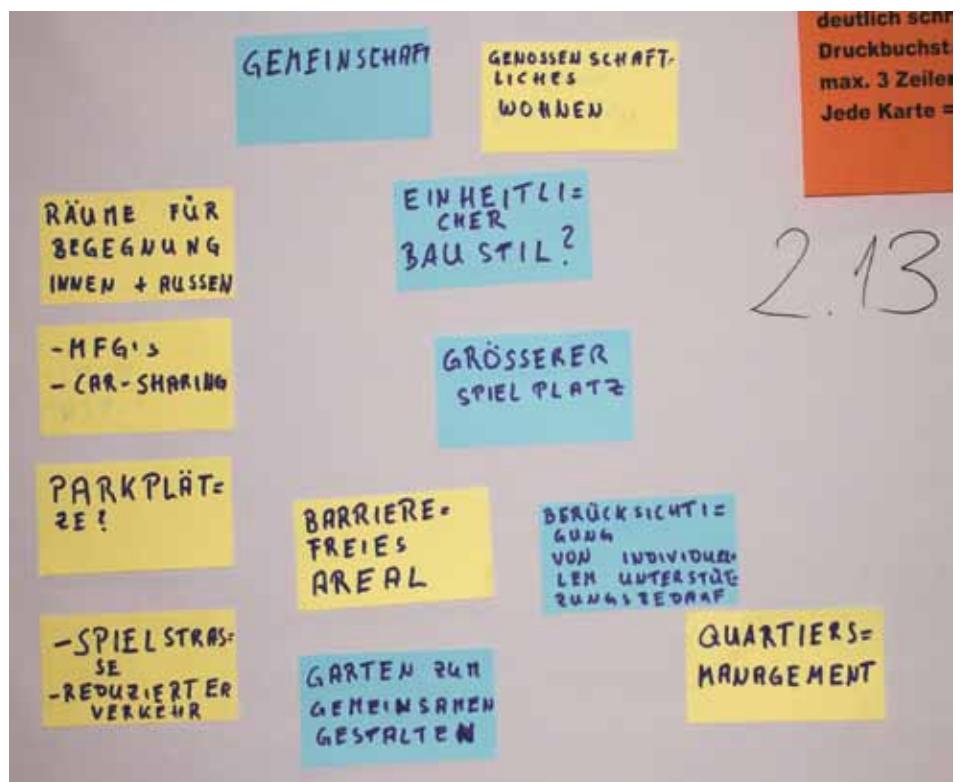 GEMEINSCHAFT
GENOSSENSCHAFT-
LICHES
WOHNEN
deutlich schr
Druckbuchst
max. 3 Zeilen
Jede Karte =
RÄUME FÜR
BEGEGNUNG
INNEN + AUSSEN
EINHEITLI=
CHER
BAUSTIL?
2.13
-MFG's
- CAR-SHARING
GRÖSSERER
SPIELPLATZ
PARKPLÄT=
ZE?
BARRIERE=
FREIES
AREAL
BERÜCKSICHTI=
GUNG
VON INDIVIDUEL=
LEM UNTERSTÜT
ZUNGSBEDARF
-SPIELSTRAS=
SE
-REDUZIERTER
VERKEHR
GARTEN ZUM
GEMEINSAMEN
GESTALTEN
QUARTIERS=
MANAGEMENT